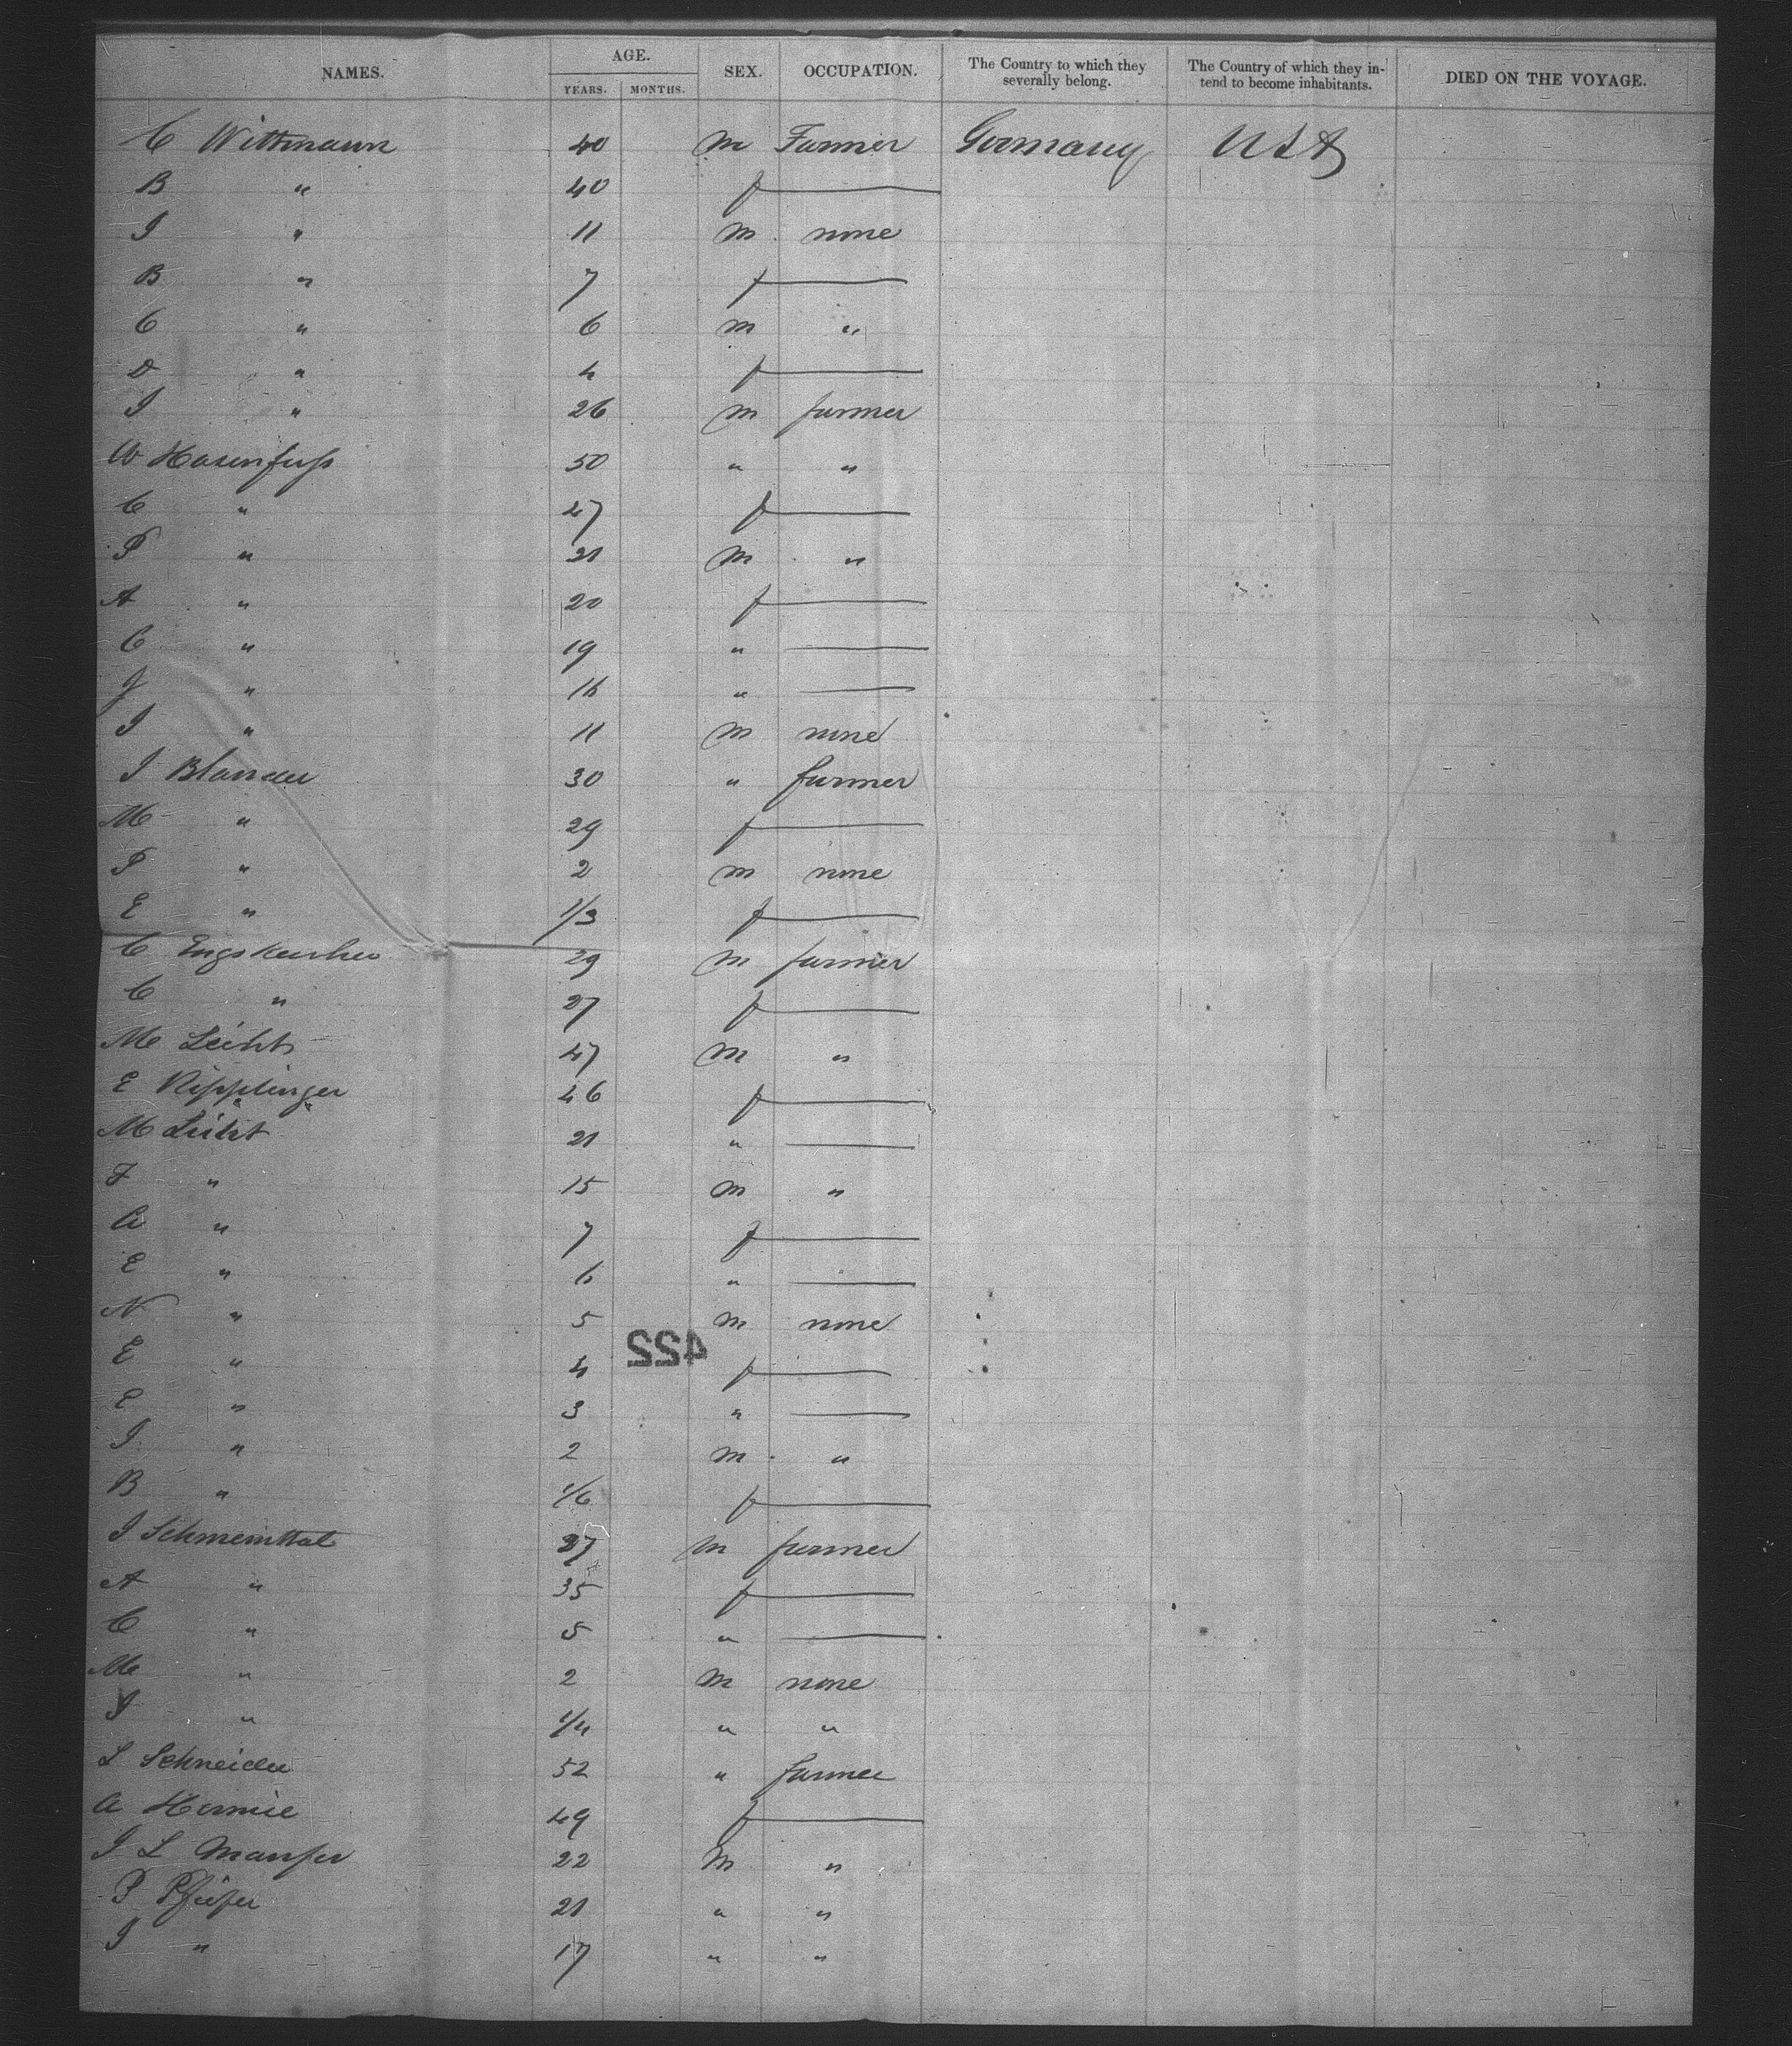 NAMES. AGE. YEARS. MONTHS. SEX. OCCUPATION. The Country to which they severally belong. The Country of which they intend to become inhabitants. DIED ON THE VOYAGE.
C Wittmann 40 m Farmer Germany USA
B " 40 f
J " 11 m none
B " 7 f
C " 6 m "
D " 4 f
J " 26 m farmer
W Hasenfuss 50 " "
C " 47 f
P " 21 m "
A " 20 f
C " 19 "
J " 16 "
J " 11 m none
J 30 " farmer
M " 29 f
P " 2 m none
E " 1/3 f
C 29 m farmer
C " 27 f
M Leicht 47 m "
E Ripplinger 46 f
M Leicht 21 "
F " 15 m "
A " 7 f
E " 6 "
N " 5 m none
422
E " 4 f
E " 3 "
J " 2 m "
B " 1/6 f
J 27 m farmer
A " 35 f
C " 5 "
M " 2 m none
J " 1/4 " "
L Schneider 52 " farmer
A 49 f
J L 22 m "
P 21 " "
J " 17 " "